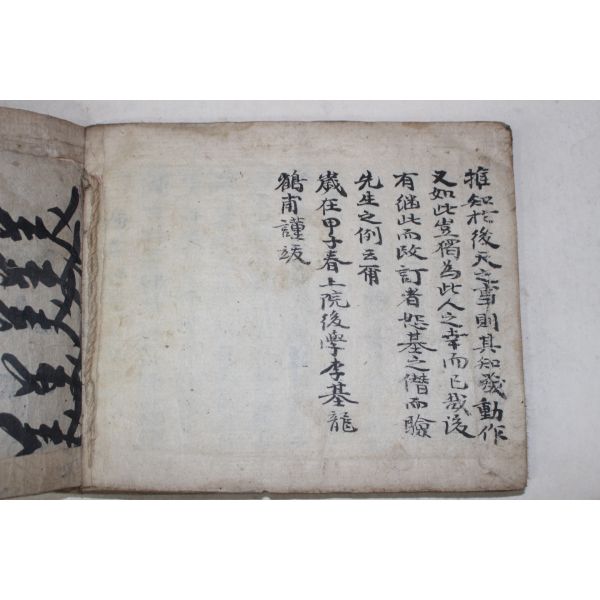 推知於後天之事則其知幾動作
又如此豈獨為此人之幸而已哉後
有继此而改訂者恕基之僭而驗
先生之例云爾
歲在甲子春上院後學李基龍
鶴甫謹跋